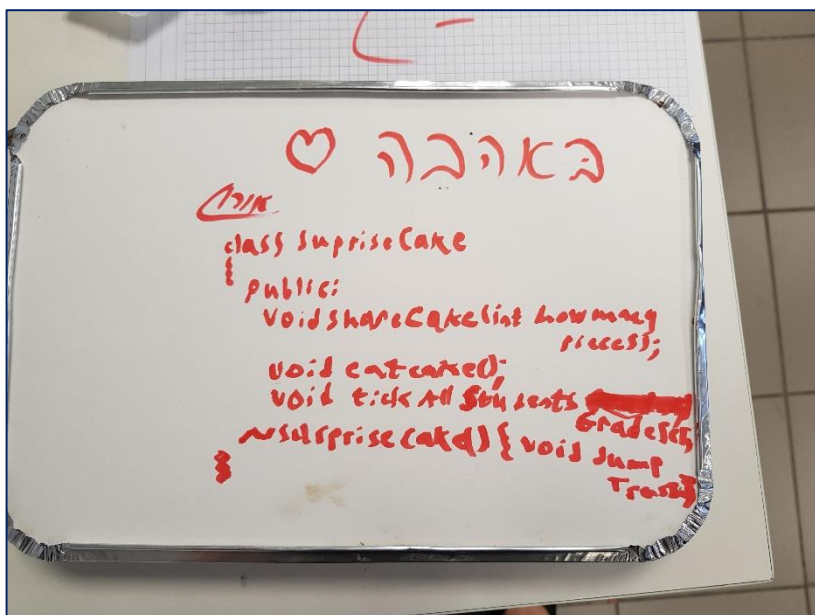 באהבה ♡
class supriseCake
{
public:
void shareCake(int howmany
pieces);
void eatcake();
void tick All Students
Grades();
~surpriseCake() { void dump
}